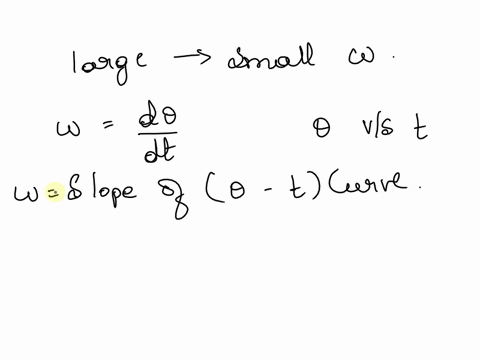 large → small ω.
ω = dθ/dt θ v/s t
ω = Slope of (θ - t) Curve.